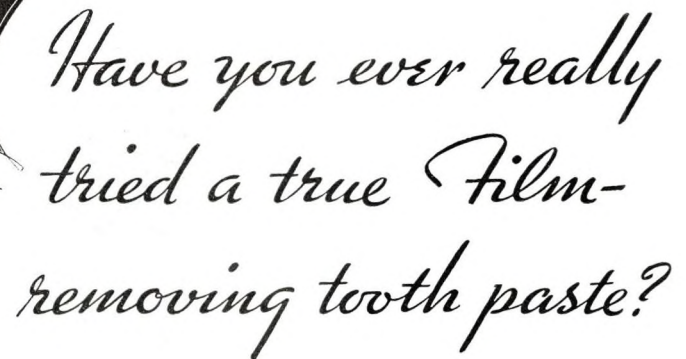 Have you ever really
tried a true Film-
removing tooth paste?